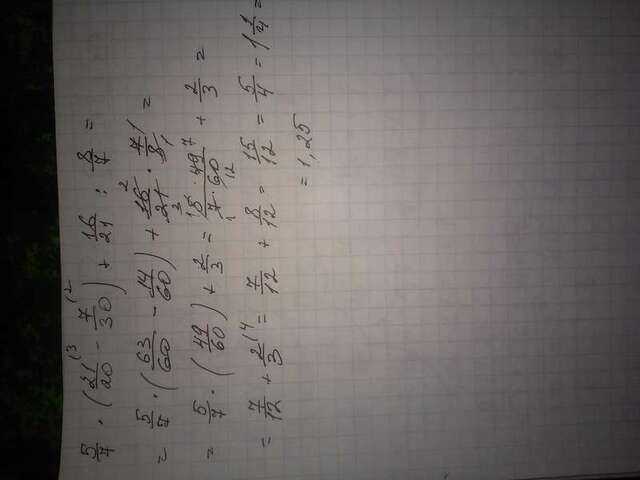 5/7 · (21/20 (3 - 7/30 (2) + 16/21 : 8/7 =
= 5/7 · (63/60 - 14/60) + 16/21 2 3 · 7/8 1 1 =
= 5/7 · (49/60) + 2/3 = 5 · 49/7 · 60 1 7 1 12 + 2/3 =
= 7/12 + 2/3 (4 = 7/12 + 8/12 = 15/12 = 5/4 = 1 1/4 =
= 1,25